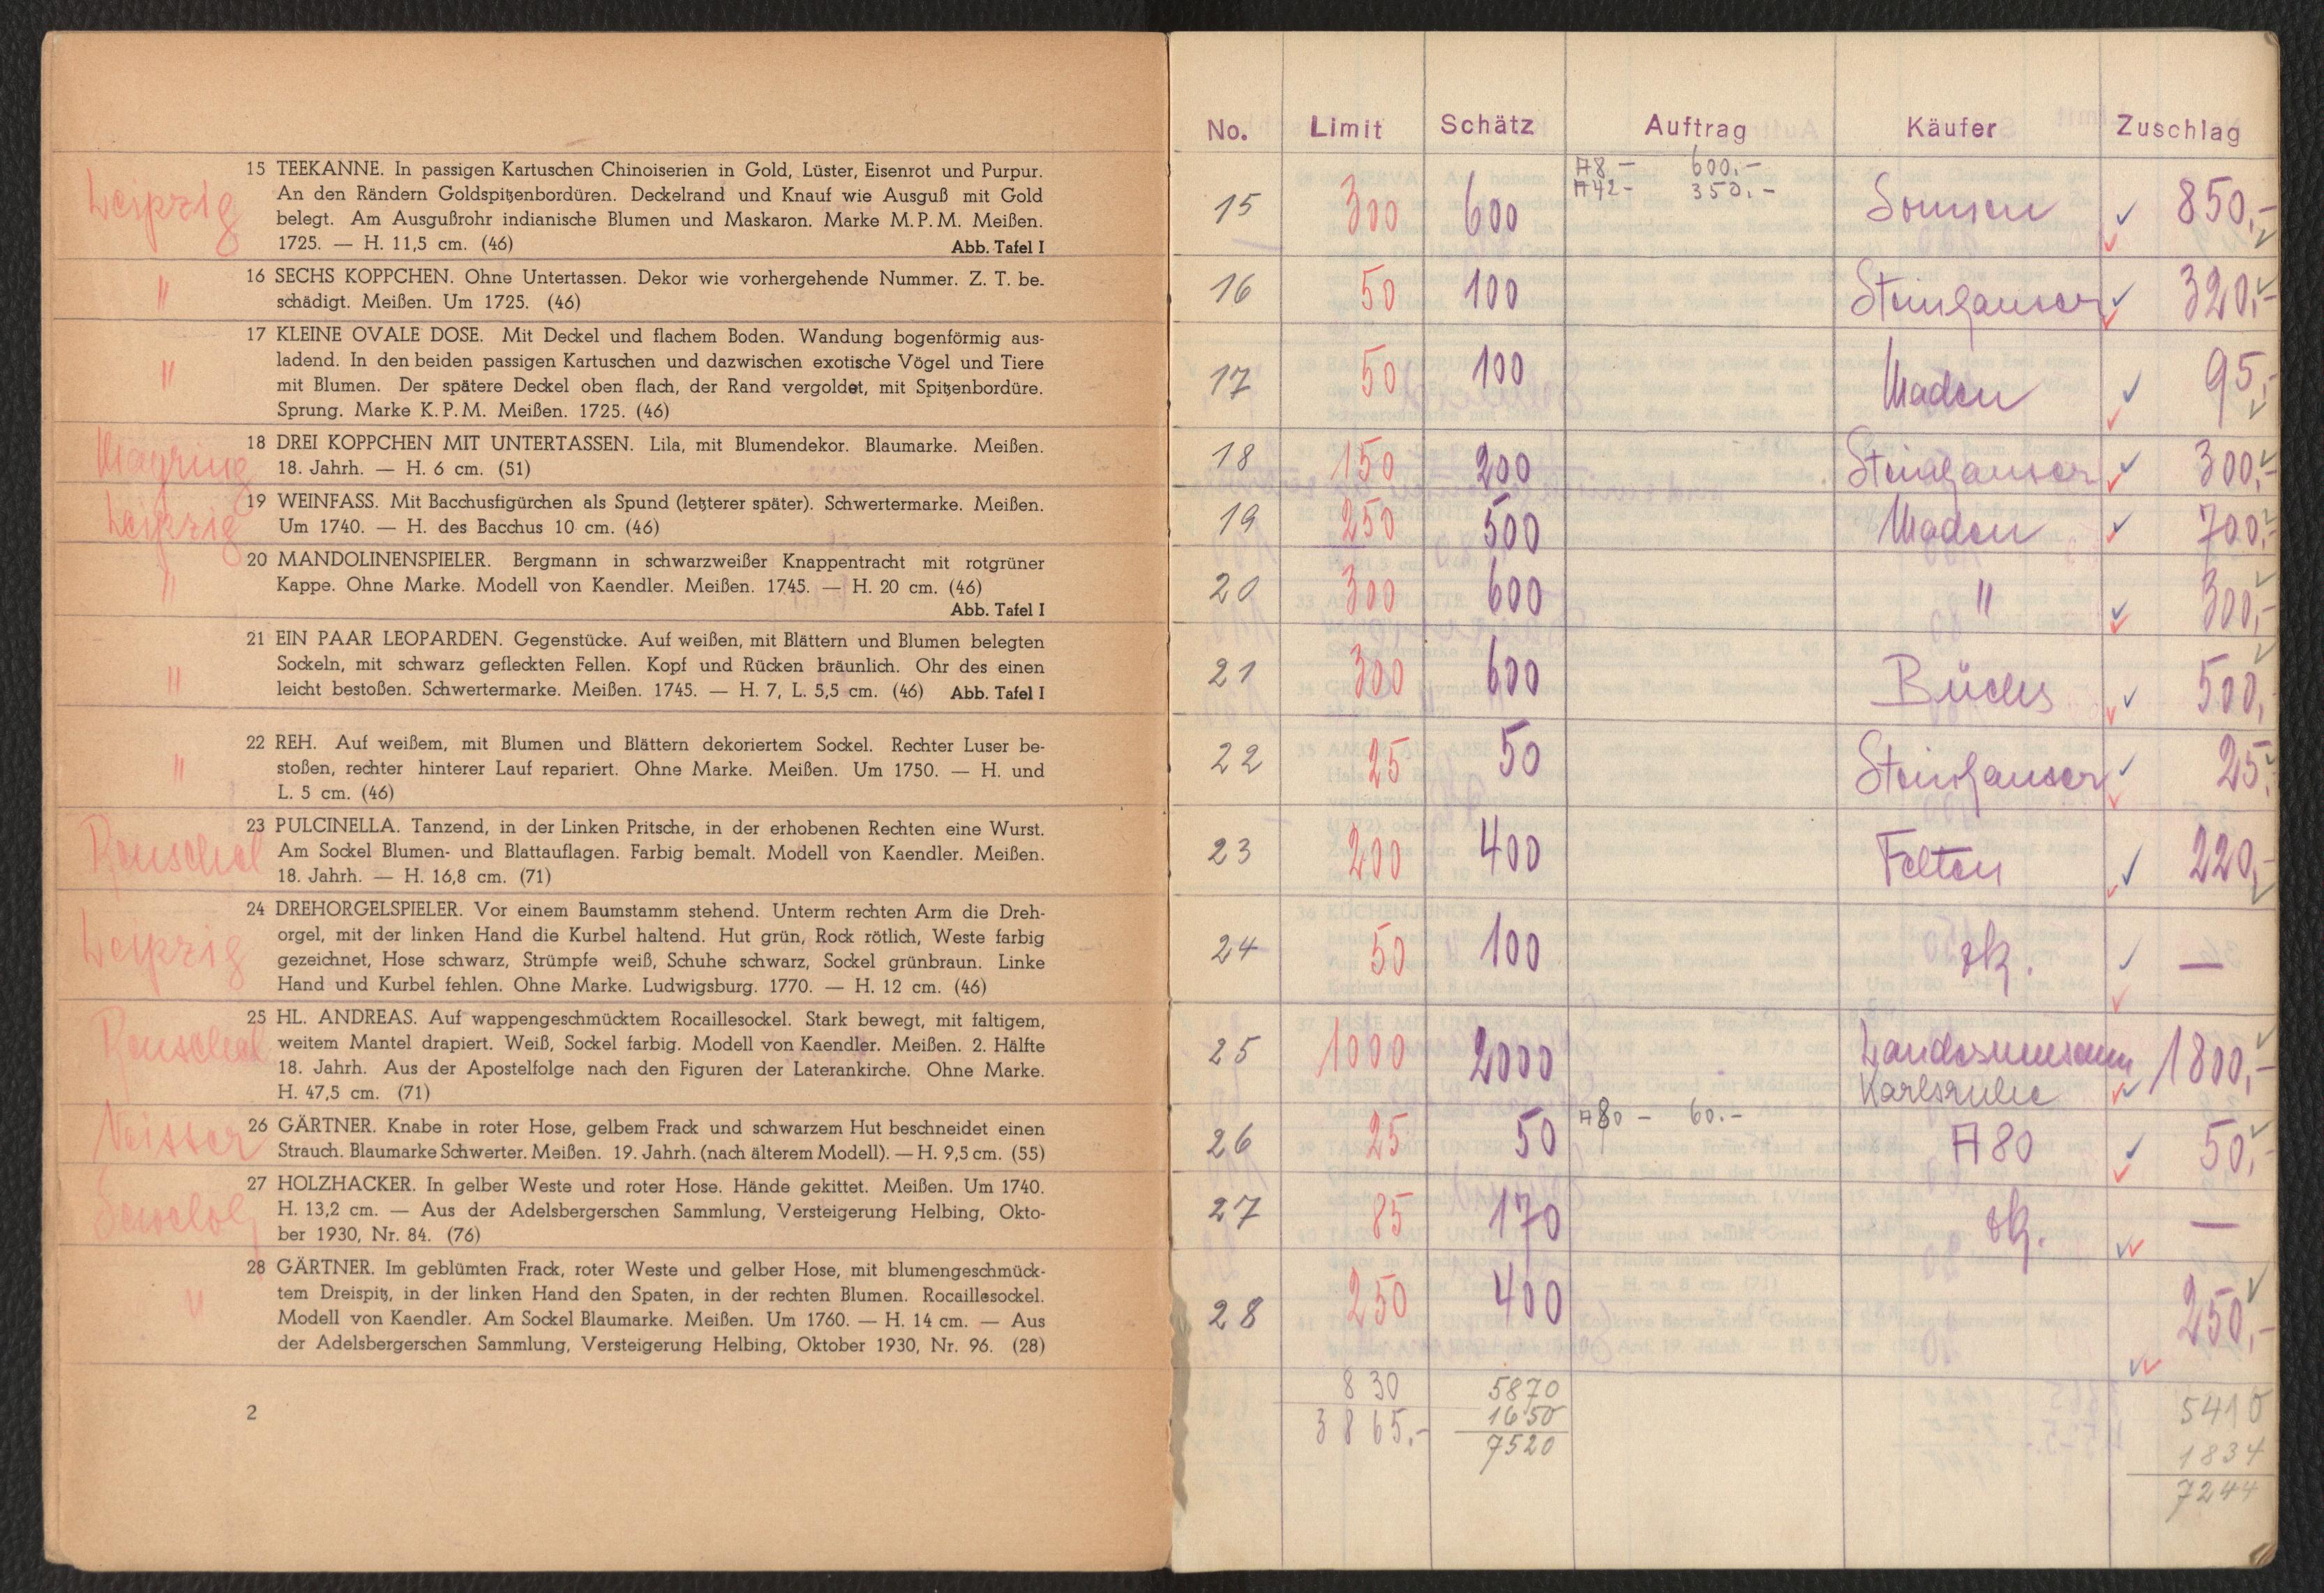 15 TEEKANNE. In passigen Kartuschen Chinoiserien in Gold, Lüster, Eisenrot und Purpur.
Leipzig
An den Rändern Goldspitzenbordüren. Deckelrand und Knauf wie Ausguß mit Gold
belegt. Am Ausgußrohr indianische Blumen und Maskaron. Marke M. P. M. Meißen.
1725. — H. 11,5 cm. (46) Abb. Tafel I
" 16 SECHS KOPPCHEN. Ohne Untertassen. Dekor wie vorhergehende Nummer. Z. T. be-
schädigt. Meißen. Um 1725. (46)
17 KLEINE OVALE DOSE. Mit Deckel und flachem Boden. Wandung bogenförmig aus-
" ladend. In den beiden passigen Kartuschen und dazwischen exotische Vögel und Tiere
mit Blumen. Der spätere Deckel oben flach, der Rand vergoldet, mit Spitzenbordüre.
Sprung. Marke K. P. M. Meißen. 1725. (46)
18 DREI KOPPCHEN MIT UNTERTASSEN. Lila, mit Blumendekor. Blaumarke. Meißen.
18. Jahrh. — H. 6 cm. (51)
19 WEINFASS. Mit Bacchusfigürchen als Spund (letzterer später). Schwertermarke. Meißen.
Leipzig
Um 1740. — H. des Bacchus 10 cm. (46)
20 MANDOLINENSPIELER. Bergmann in schwarzweißer Knappentracht mit rotgrüner
" Kappe. Ohne Marke. Modell von Kaendler. Meißen. 1745. — H. 20 cm. (46)
Abb. Tafel I
21 EIN PAAR LEOPARDEN. Gegenstücke. Auf weißen, mit Blättern und Blumen belegten
Sockeln, mit schwarz gefleckten Fellen. Kopf und Rücken bräunlich. Ohr des einen
" leicht bestoßen. Schwertermarke. Meißen. 1745. — H. 7, L. 5,5 cm. (46) Abb. Tafel I
22 REH. Auf weißem, mit Blumen und Blättern dekoriertem Sockel. Rechter Luser be-
" stoßen, rechter hinterer Lauf repariert. Ohne Marke. Meißen. Um 1750. — H. und
L. 5 cm. (46)
23 PULCINELLA. Tanzend, in der Linken Pritsche, in der erhobenen Rechten eine Wurst.
Am Sockel Blumen- und Blattauflagen. Farbig bemalt. Modell von Kaendler. Meißen.
18. Jahrh. — H. 16,8 cm. (71)
24 DREHORGELSPIELER. Vor einem Baumstamm stehend. Unterm rechten Arm die Dreh-
Leipzig
orgel, mit der linken Hand die Kurbel haltend. Hut grün, Rock rötlich, Weste farbig
gezeichnet, Hose schwarz, Strümpfe weiß, Schuhe schwarz, Sockel grünbraun. Linke
Hand und Kurbel fehlen. Ohne Marke. Ludwigsburg. 1770. — H. 12 cm. (46)
25 HL. ANDREAS. Auf wappengeschmücktem Rocaillesockel. Stark bewegt, mit faltigem,
weitem Mantel drapiert. Weiß, Sockel farbig. Modell von Kaendler. Meißen. 2. Hälfte
18. Jahrh. Aus der Apostelfolge nach den Figuren der Laterankirche. Ohne Marke.
H. 47,5 cm. (71)
26 GÄRTNER. Knabe in roter Hose, gelbem Frack und schwarzem Hut beschneidet einen
Strauch. Blaumarke Schwerter. Meißen. 19. Jahrh. (nach älterem Modell). — H. 9,5 cm. (55)
27 HOLZHACKER. In gelber Weste und roter Hose. Hände gekittet. Meißen. Um 1740.
H. 13,2 cm. — Aus der Adelsbergerschen Sammlung, Versteigerung Helbing, Okto-
ber 1930, Nr. 84. (76)
28 GÄRTNER. Im geblümten Frack, roter Weste und gelber Hose, mit blumengeschmück-
" tem Dreispitz, in der linken Hand den Spaten, in der rechten Blumen. Rocaillesockel.
Modell von Kaendler. Am Sockel Blaumarke. Meißen. Um 1760. — H. 14 cm. — Aus
der Adelsbergerschen Sammlung, Versteigerung Helbing, Oktober 1930, Nr. 96. (28)
2
No. Limit Schätz Auftrag Käufer Zuschlag
A8 – 600.–
A42 – 350.–
15 300 600 850,–
16 50 100 Steinhauser 320,–
17 50 100 Maden 95,–
18 150 200 Steinhauser 300,–
19 250 500 Maden 700,–
20 300 600 " 300,–
21 300 600 Büchs 500,–
22 25 50 Steinhauser 25,–
23 200 400 Felten 220,–
24 50 100 zk. —
25 1000 2000 Landesmuseum Karlsruhe 1800,–
26 25 50 A80 – 60.– A80 50,–
27 85 170 zk. —
28 250 400 250,–
830 5870 5410
3865.– 1650 1834
7520 7244